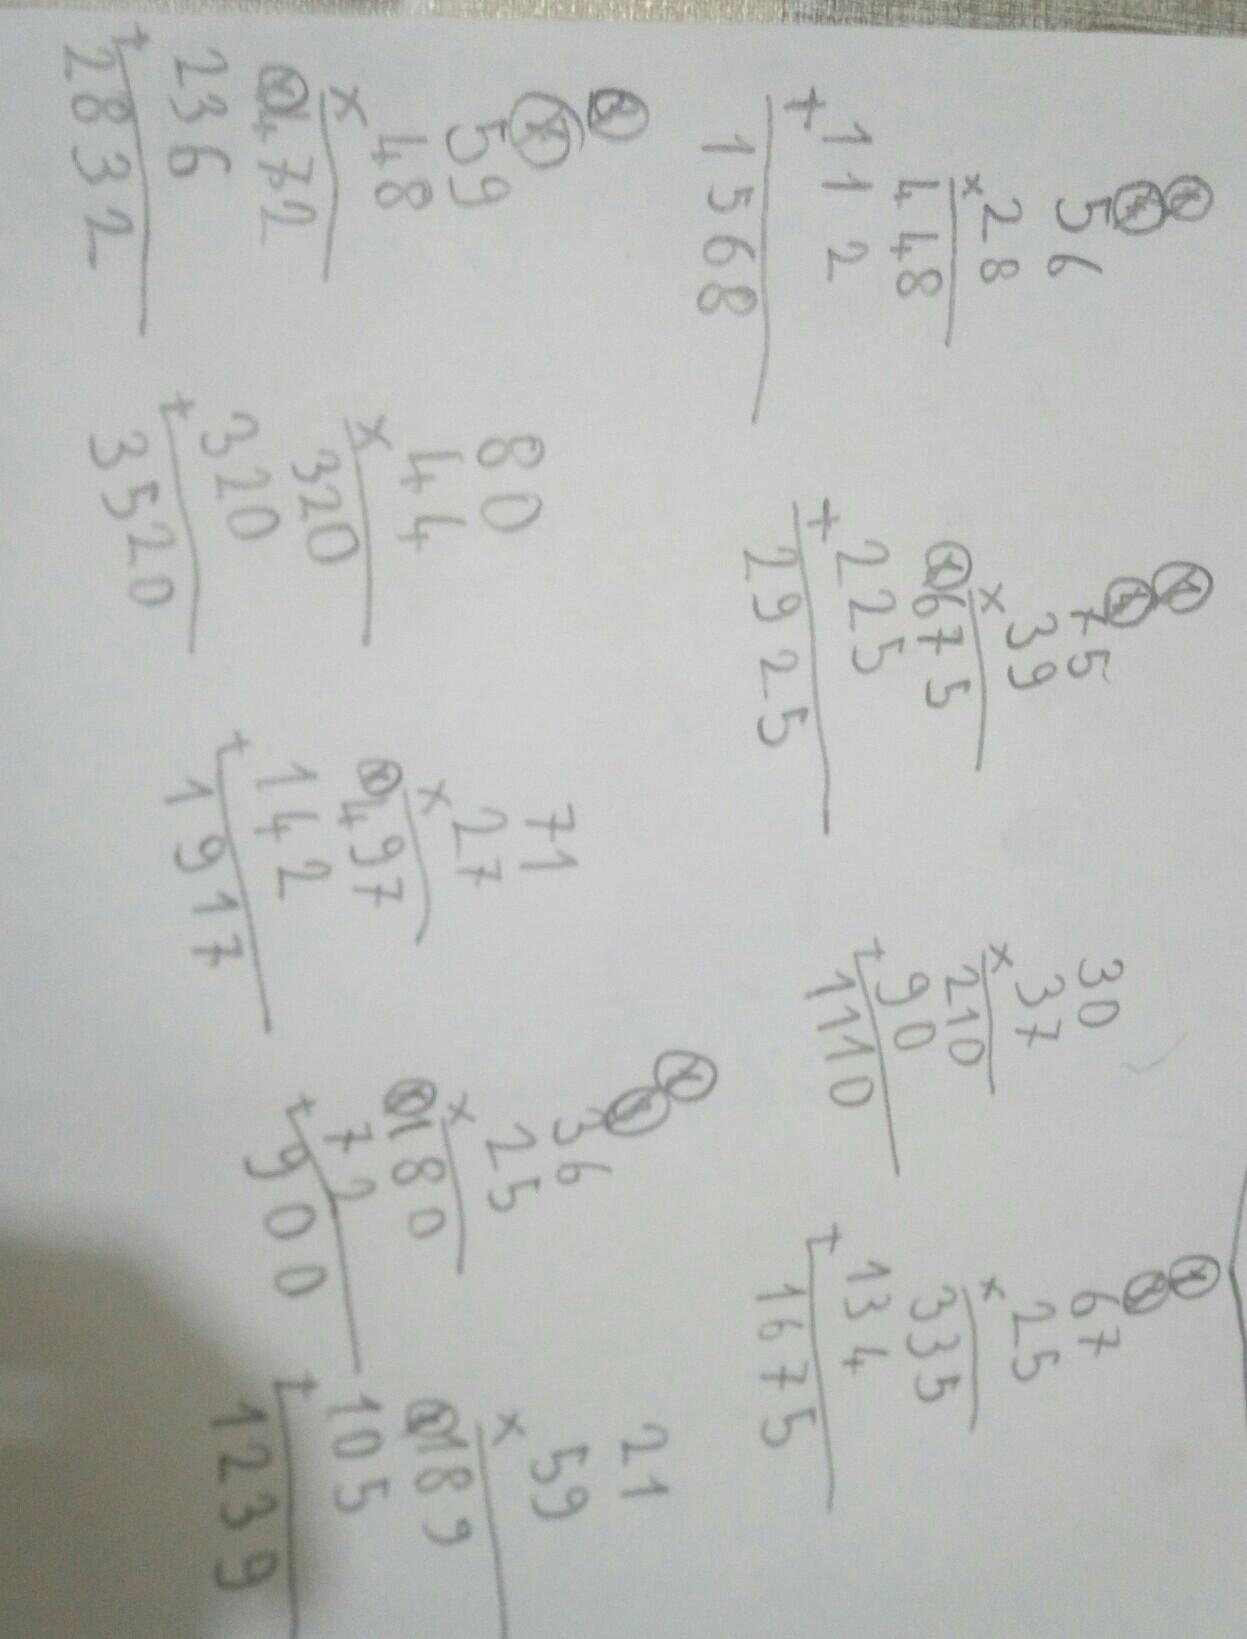 56
×28
448
+112
1568
75
×39
675
+225
2925
30
×37
210
+90
1110
67
×25
335
+134
1675
59
×48
472
+236
2832
80
×44
320
+320
3520
71
×27
497
+142
1917
36
×25
180
+72
900
21
×59
189
+105
1239